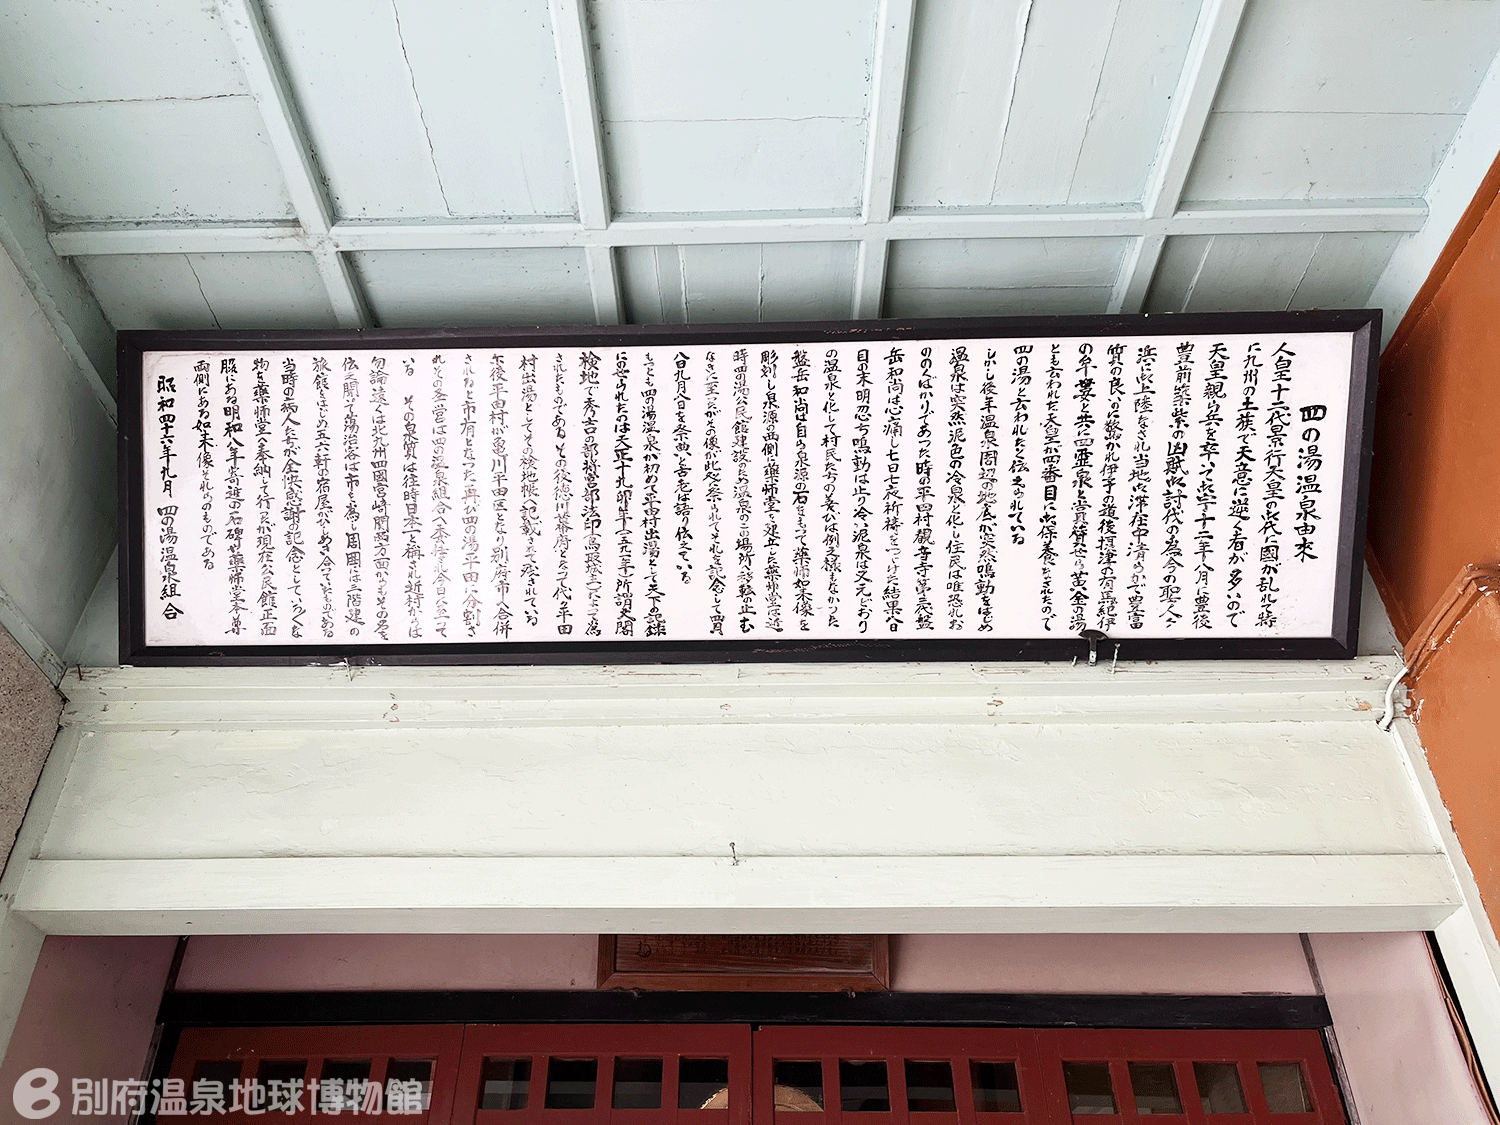 四の湯温泉由来
人皇十二代景行天皇の御代に國が乱れて特
に九州の土族で天意に逆く者が多いので
天皇親ら兵を卒いて御宇十二年八月に豊後
豊前築紫の凶賊御討伐の為今の聖人ヶ
浜に御上陸なされ当地御滞在中清らかで豊富
質の良いのに驚かれ伊予の道後摂津の有馬紀伊
の牟婁と共に四霊泉と賞賛せら 黄金の湯
とも云われた天皇が四番目に御保養なされたので
四の湯と云われたと伝えられている
しかし後年温泉周辺の地底が突然鳴動をはじめ
温泉は突然泥色の冷泉と化し住民は唯恐れお
ののくばかりであった時の平田村観音寺第三代盤
岳和尚は心痛し七日七夜祈祷をつづけた結果八日
目の末明忽ち鳴動は止り冷い泥泉は又元どおり
の温泉と化して村民たちの喜びは例え様もなかった
盤岳和尚は自ら泉源の石をもって薬師如来像を
彫刻し泉源の西側に薬師堂を建立した薬師堂は近
時四の湯公民館建設のため温泉のこの場所へ移転の止む
なきに至ったがその像が此処に祭られてそれを記念して四月
八日九月八日を祭典と古老は語り伝えている
もっとも四の湯温泉が初めて平田村出湯として天下の記録
にのせられたのは天正十九卯年(一五九一年)所謂太閤
検地で秀吉の部将宮部法印高取城主によって為
されたものであるその後徳川幕府となった二代平田
村出湯としてその検地帳へ記載されて残されている
下後平田村が亀川平田区となり別府市へ合併
されると市有となったが再び四の湯平田に分割さ
れその経営は四の湯温泉組合へ委任され今日に至って
いる その泉質は往時日本一と称され近村からは
勿論遠くは北九州四國宮崎関西方面からもその名を
伝え聞いて湯治客は市を為し周囲には三階建の
旅館をはじめ五六軒の宿屋がひしめき合っていたものである
当時の病人たちが全快感謝の記念としていろくな
物を薬師堂へ奉納して行ったが現在公民館正面
脇にある明和八年寄進の石碑や薬師堂本尊
両側にある如来像もそれのものである
昭和四十六年九月 四の湯温泉組合
別府温泉地球博物館